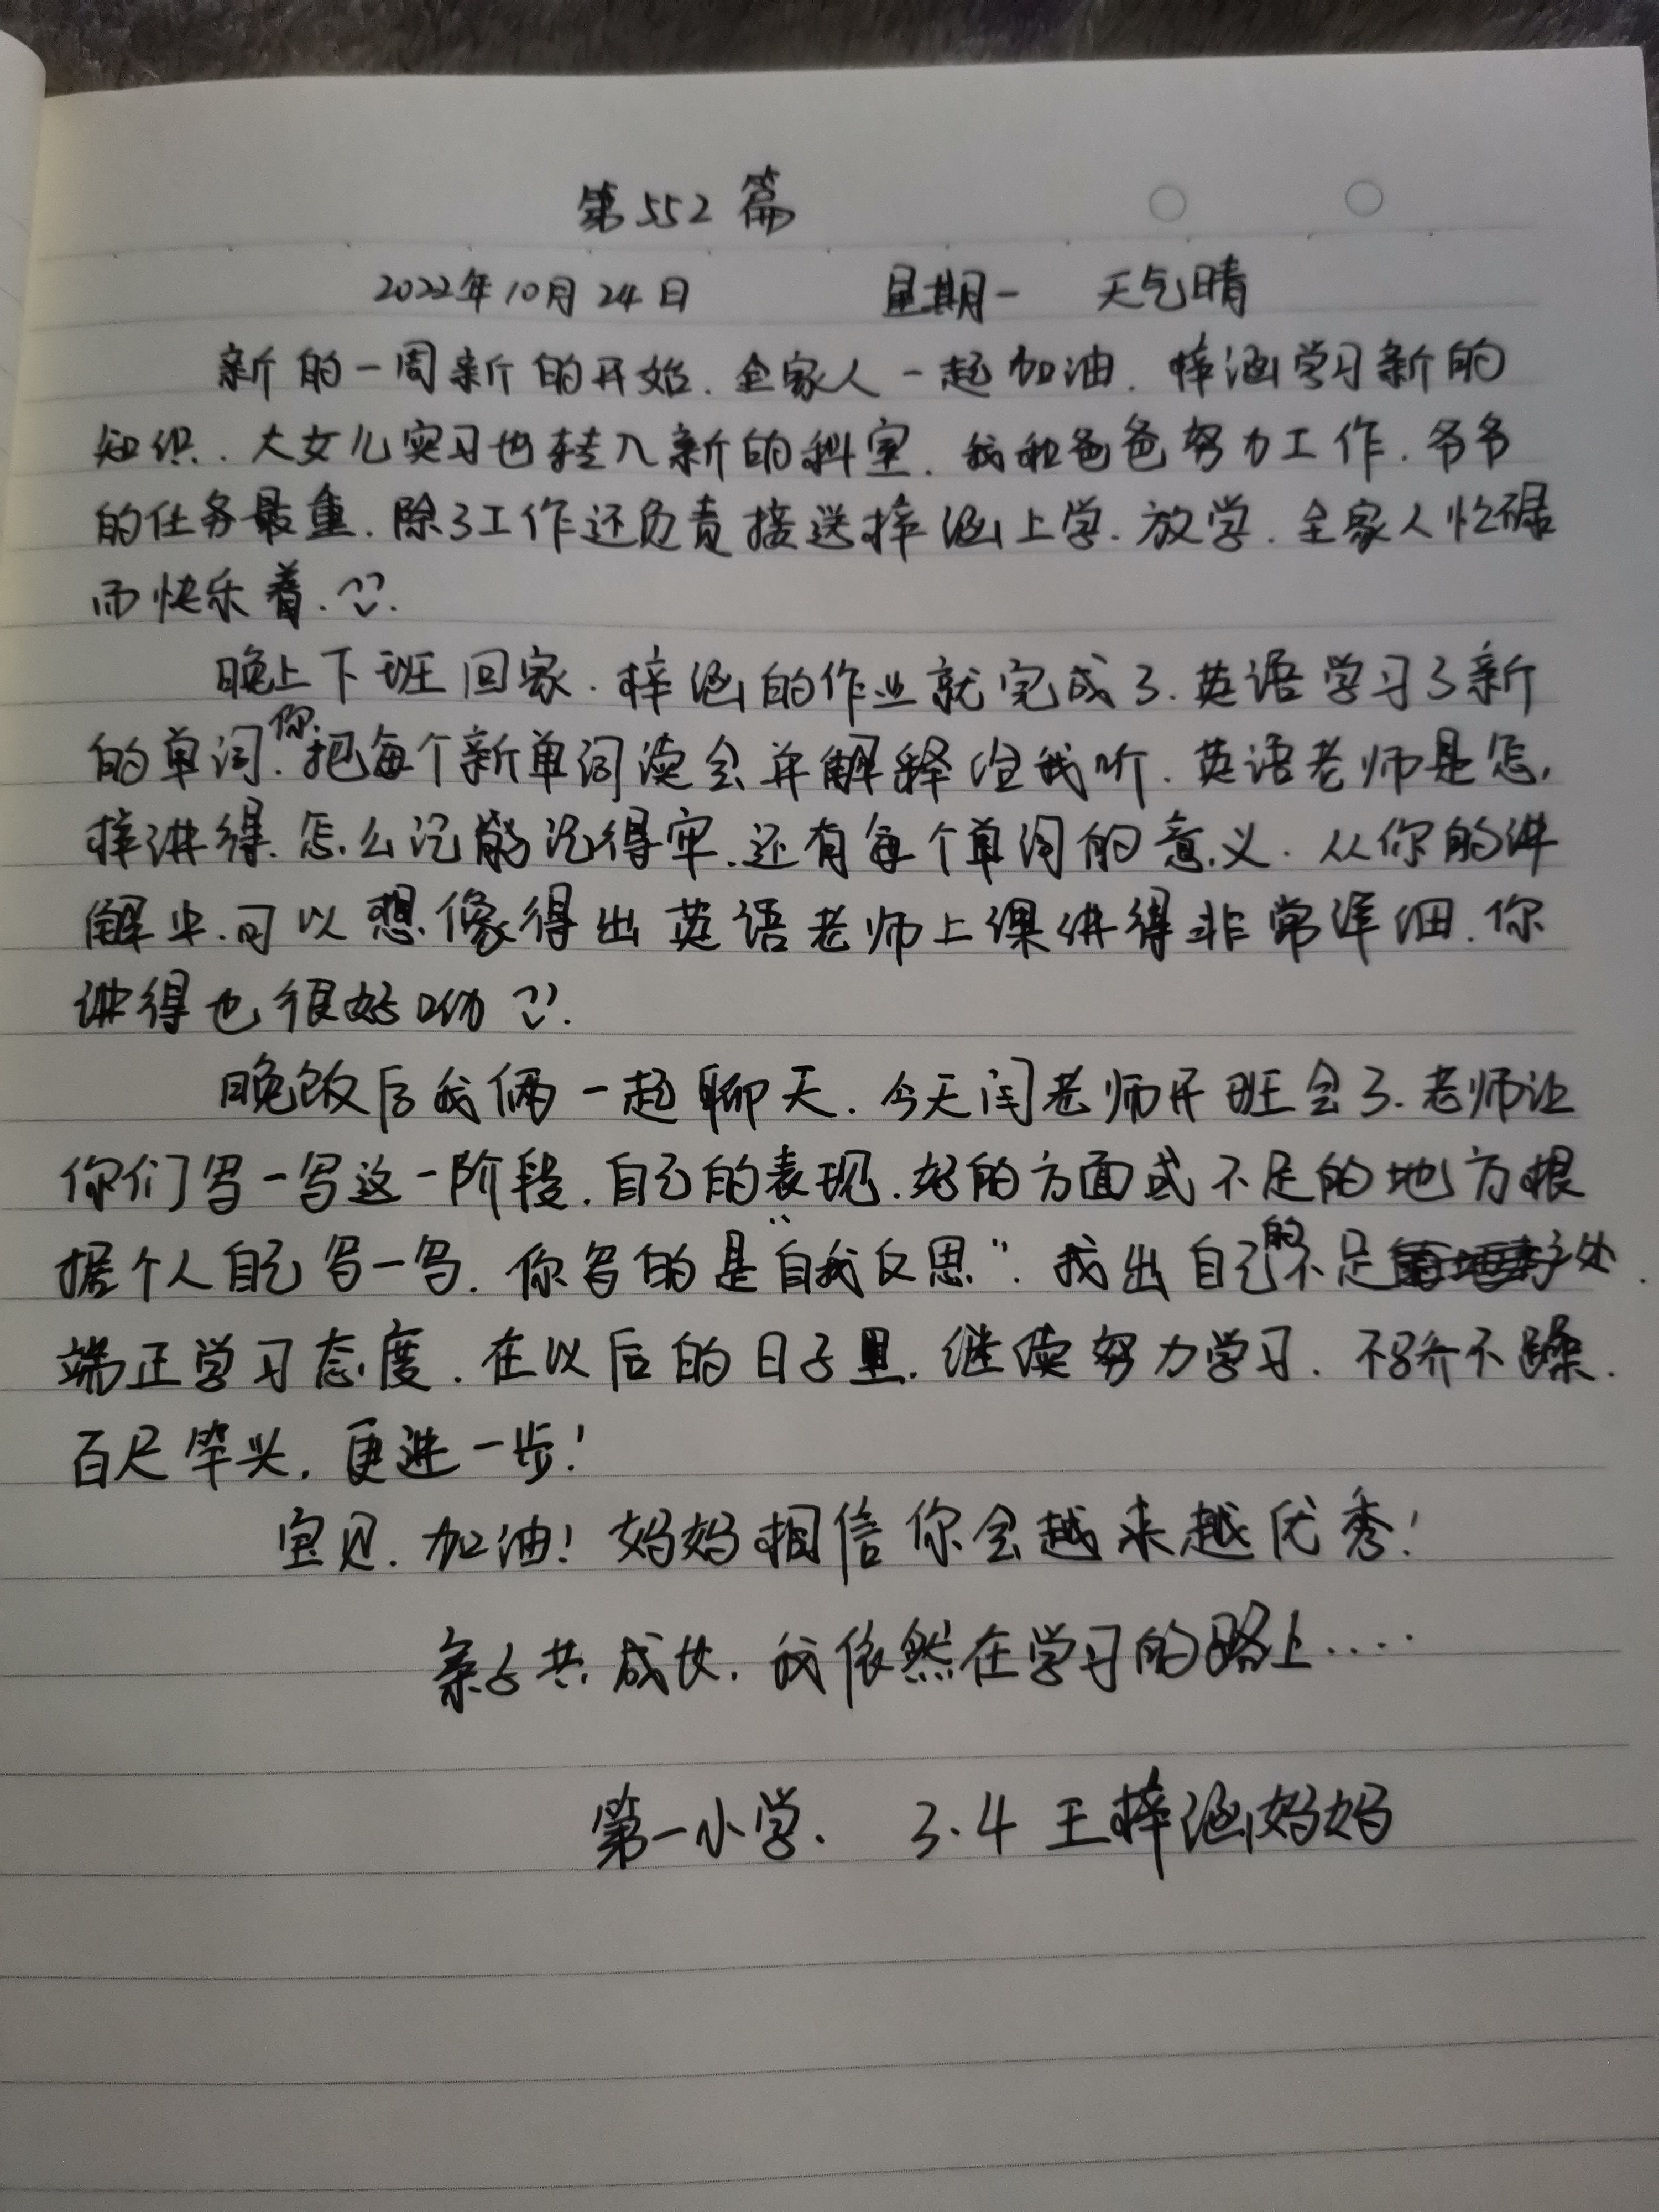 第552篇
2022年10月24日 星期一 天气晴
新的一周新的开始.全家人一起加油.梓涵学习新的
知识.大女儿实习也转入新的科室.我和爸爸努力工作.爷爷
的任务最重.除了工作还负责接送梓涵上学.放学.全家人忙碌
而快乐着.
晚上下班回家.梓涵的作业就完成了.英语学习了新
的单词.你把每个新单词读会并解释给我听.英语老师是怎
样讲得.怎么记能记得牢.还有每个单词的意义.从你的讲
解中.可以想像得出英语老师上课讲得非常详细.你
讲得也很好呦
晚饭后我俩一起聊天.今天闫老师开班会了.老师让
你们写一写这一阶段.自己的表现.好的方面或不足的地方根
据个人自己写一写.你写的是“自我反思”.找出自己的不足之处.
端正学习态度.在以后的日子里.继续努力学习.不骄不躁.
百尺竿头,更进一步!
宝贝.加油!妈妈相信你会越来越优秀!
亲子共成长.我依然在学习的路上....
第一小学. 3.4 王梓涵妈妈